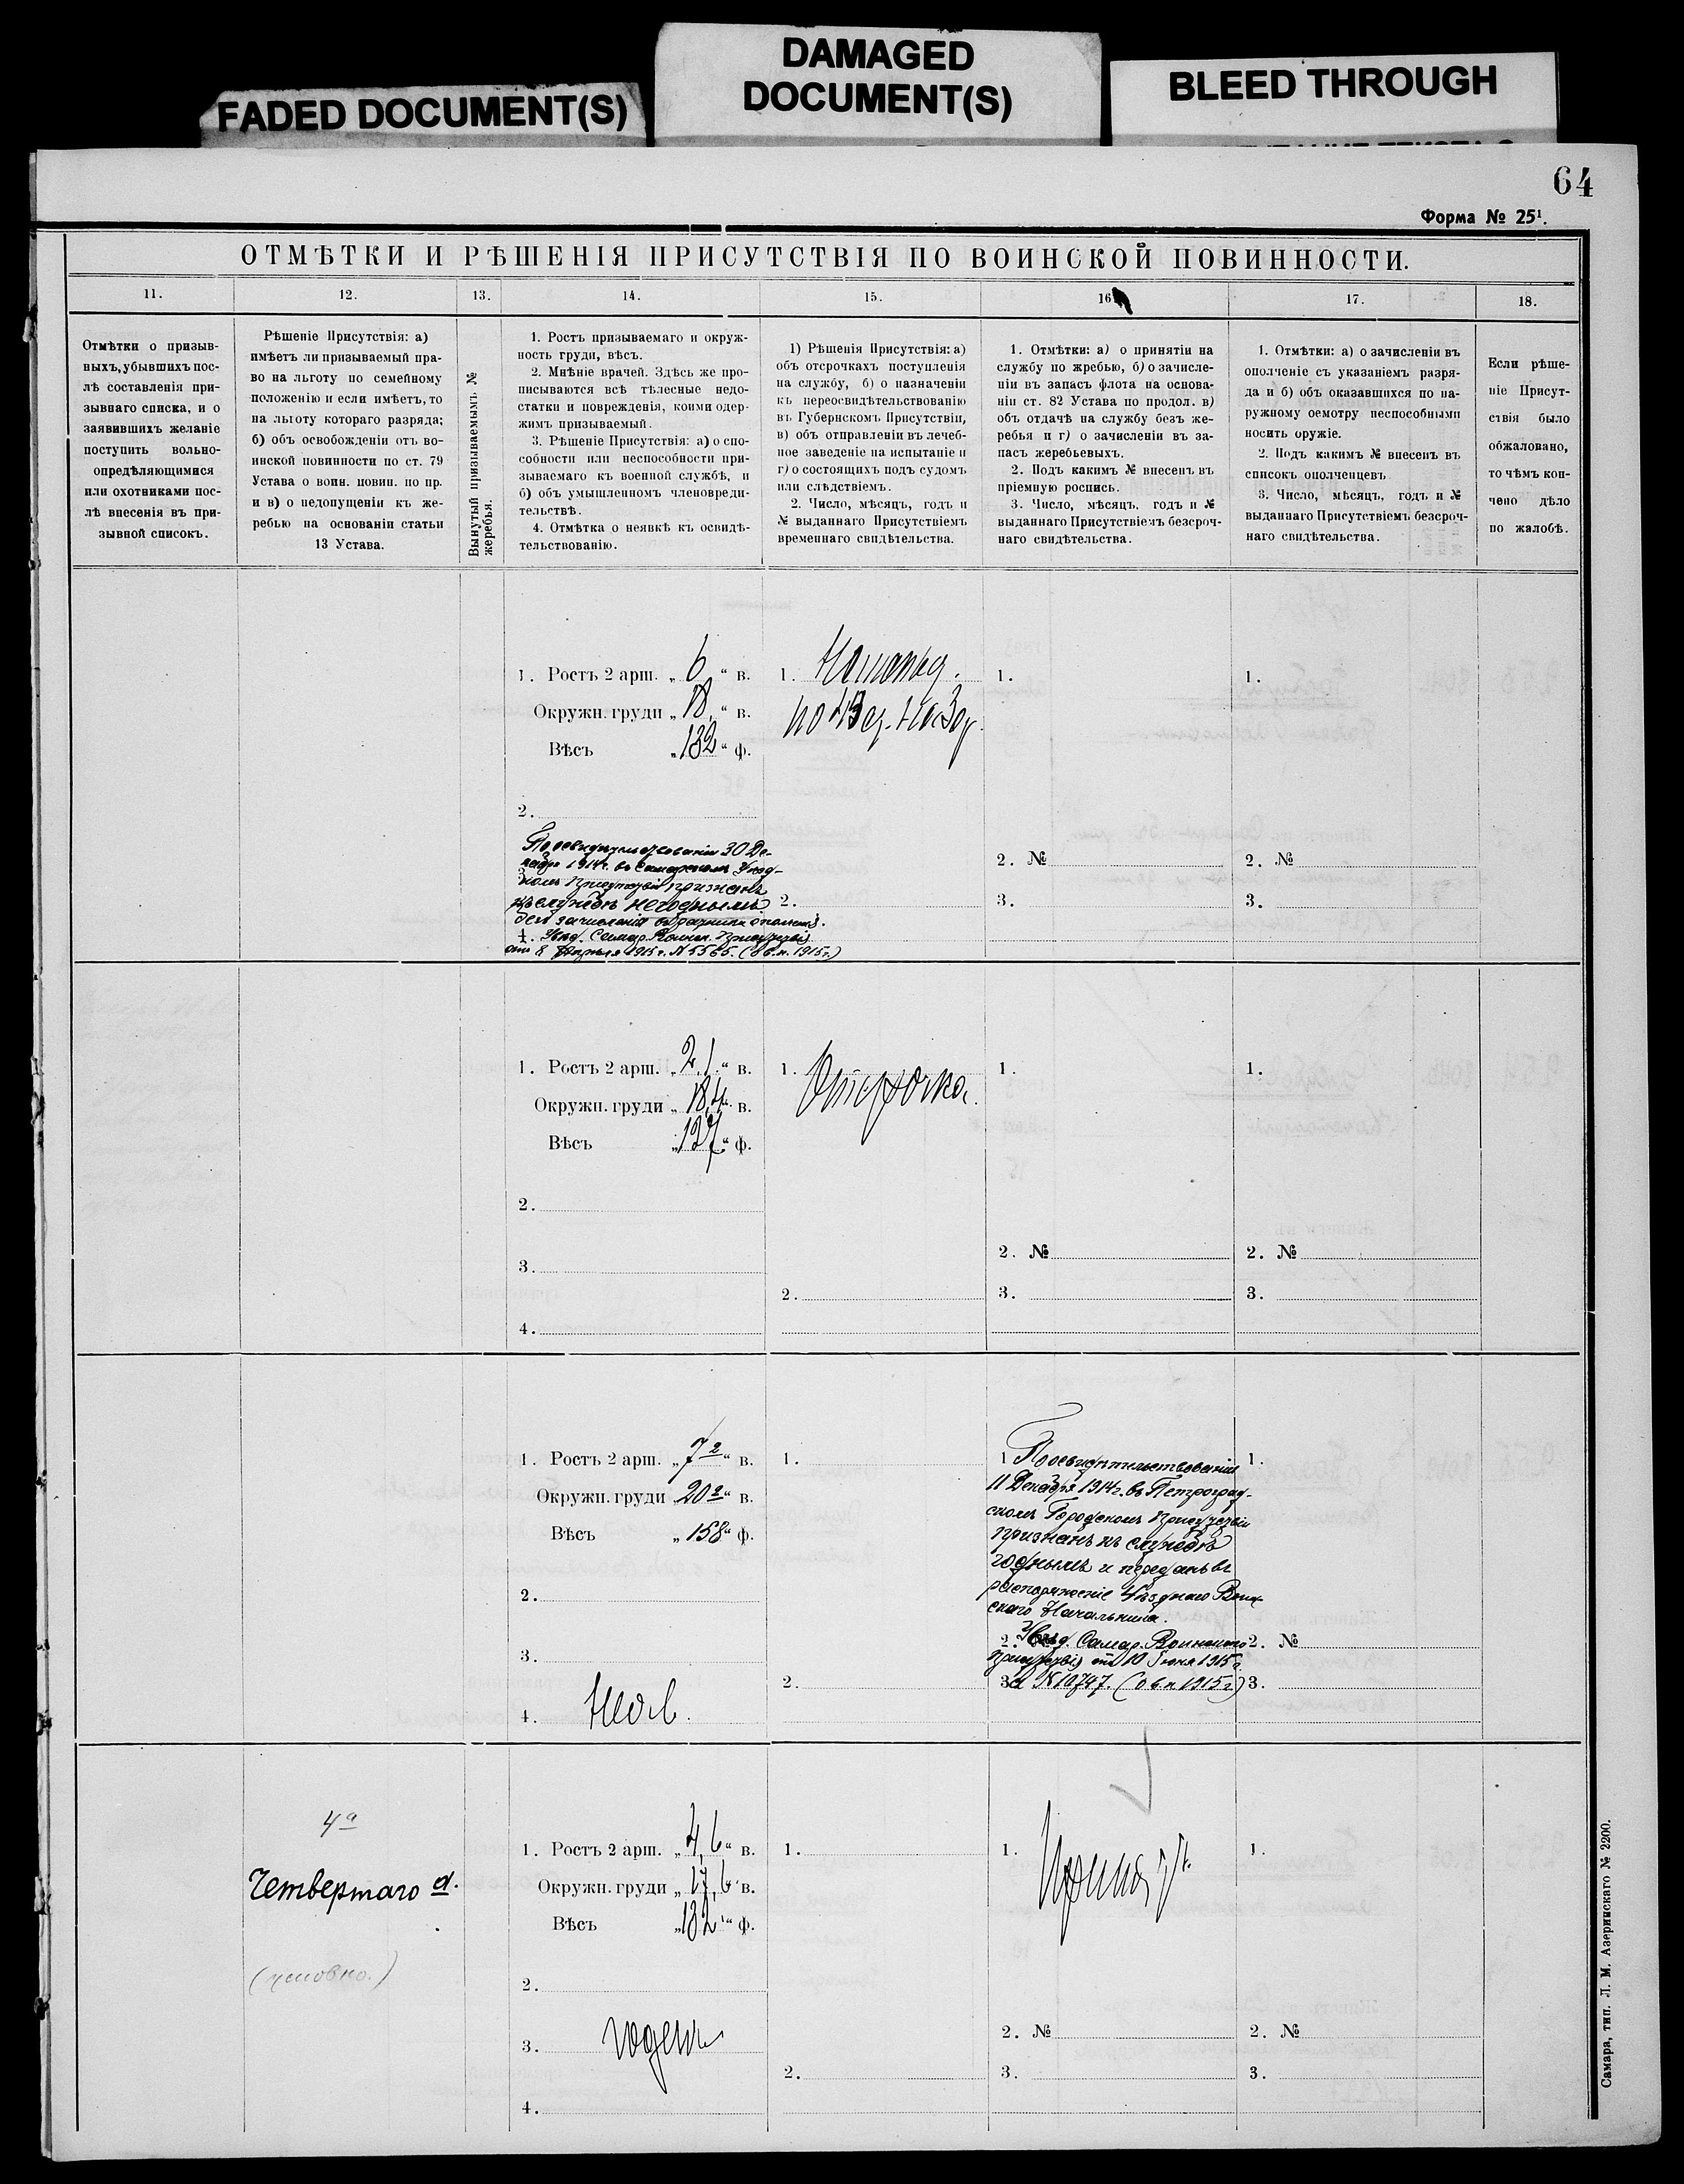 FADED DOCUMENT(S)
DAMAGED
DOCUMENT(S)
BLEED THROUGH
64
Форма № 25¹.
ОТМѢТКИ И РѢШЕНІЯ ПРИСУТСТВІЯ ПО ВОИНСКОЙ ПОВИННОСТИ.
11.
12.
13.
14.
15.
16.
17.
18.
Отмѣтки о призыв-
ныхъ, убывшихъ пос-
лѣ составленія при-
зывнаго списка, и о
заявившихъ желаніе
поступить вольно-
опредѣляющимися
или охотниками пос-
лѣ внесенія въ при-
зывной списокъ.
Рѣшеніе Присутствія: а)
имѣетъ ли призываемый пра-
во на льготу по семейному
положенію и если имѣетъ, то
на льготу котораго разряда;
б) объ освобожденіи отъ во-
инской повинности по ст. 79
Устава о воин. повин. по пр.
и в) о недопущеніи къ же-
ребью на основаніи статьи
13 Устава.
Вынутый призываемымъ №
жеребья.
1. Ростъ призываемаго и окруж-
ность груди, вѣсъ.
2. Мнѣніе врачей. Здѣсь же про-
писываются всѣ тѣлесные недо-
статки и поврежденія, коими одер-
жимъ призываемый.
3. Рѣшеніе Присутствія: а) о спо-
собности или неспособности при-
зываемаго къ военной службѣ, и
б) объ умышленномъ членовреди-
тельствѣ.
4. Отмѣтка о неявкѣ къ освидѣ-
тельствованію.
1) Рѣшенія Присутствія: а)
объ отсрочкахъ поступленія
на службу, б) о назначеніи
къ переосвидѣтельствованію
въ Губернскомъ Присутствіи,
в) объ отправленіи въ лечеб-
ное заведеніе на испытаніе и
г) о состоящихъ подъ судомъ
или слѣдствіемъ.
2. Число, мѣсяцъ, годъ и
№ выданнаго Присутствіемъ
временнаго свидѣтельства.
1. Отмѣтки: а) о принятіи на
службу по жребью, б) о зачисле-
ніи въ запасъ флота на основа-
ніи ст. 82 Устава по продол. в)
объ отдачѣ на службу безъ же-
ребья и г) о зачисленіи въ за-
пасъ жеребьевыхъ.
2. Подъ какимъ № внесенъ въ
пріемную роспись.
3. Число, мѣсяцъ, годъ и №
выданнаго Присутствіемъ безсроч-
наго свидѣтельства.
1. Отмѣтки: а) о зачисленіи въ
ополченіе съ указаніемъ разря-
да и б) объ оказавшихся по на-
ружному осмотру неспособными
носить оружіе.
2. Подъ какимъ № внесенъ въ
списокъ ополченцевъ
3. Число, мѣсяцъ, годъ и №
выданнаго Присутствіемъ безсроч-
наго свидѣтельства.
Если рѣше-
ніе Присут-
ствія было
обжаловано,
то чѣмъ кон-
чено дѣло
по жалобѣ.
1. Ростъ 2 арш. „ 6 “ в.
Окружн. груди „ 18 “ в.
Вѣсъ „ 132 “ ф.
2.
По освидѣтельствованіи 30 Де-
кабря 1914 г. въ Самарскомъ Уѣзд-
номъ Присутствіи признанъ
къ службѣ негоднымъ
для зачисленія въ ратники ополчен.
4. Увѣд. Самар. Воинск. Присутствія
отъ 8 Апрѣля 1915 г. № 5565. (о в.п. 1915 г.)
1.
2.
1.
2. №
3.
1.
2. №
3.
1. Ростъ 2 арш. „ 2,1 “ в.
Окружн. груди „ 18,4 “ в.
Вѣсъ „ 127 “ ф.
2.
3.
4.
1. Отсрочка.
2.
1.
2. №
3.
1.
2. №
3.
1. Ростъ 2 арш. „ 7 2 “ в.
Окружн. груди „ 20 2 “ в.
Вѣсъ „ 158 “ ф.
2.
3.
4. Неяв.
1.
2.
1 По освидѣтельствованіи
11 Декабря 1914 г. въ Петроград-
скомъ Городскомъ Присутствіи
признанъ къ службѣ
годнымъ и переданъ въ
распоряженіе Уѣзднаго Воин-
скаго Начальника.
2. Увѣд. Самар. Воинскаго
Присутствія отъ 10 Іюня 1915 г.
3 за № 10747. (о в.п 1915 г.)
1.
2. №
3.
4а
Четвертаго а.
(условно.)
1. Ростъ 2 арш. „ 4,6 “ в.
Окружн. груди „ 17,6 “ в.
Вѣсъ „ 132 “ ф.
2.
3. годенъ
4.
1.
2.
1. Принятъ.
2. №
3.
1.
2. №
3.
Самара, тип. Л. М. Азеринскаго № 2200.